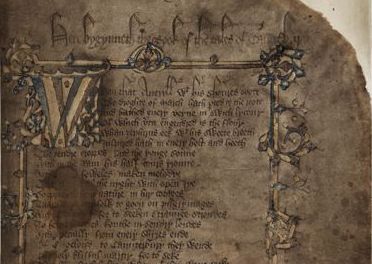 Here bygynneth the Book of the tales of
Whan that Aueryll W his shoures soote
The droghte of march hath perced to the roote
And bathed euery veyne in swich lycour
Of which vertu engendred is the flour
Whan zephirus eek W his sweete breeth
hath in euery holt and heeth
The tendre croppes and the yonge sonne
in the Ram his half cours yronne
foweles maken melodye
the nyght with open Iye
nature in hir corages
folk to goon on pilgrymages
for to seken straunge strondes
To ferne halwes kouthe in sondry londes
And specially from euery shyres ende
Of to Caunterbury they wende
The holy blisful martir for to seke